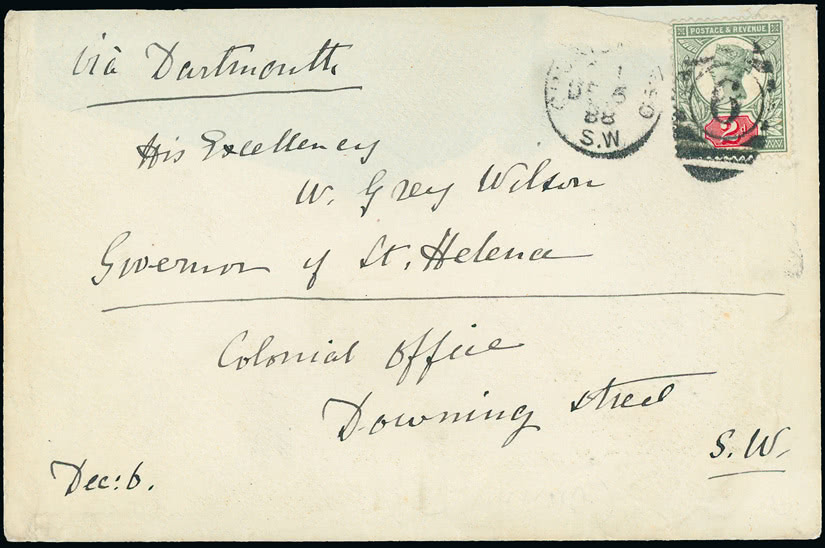 via Dartmouth
POSTAGE & REVENUE
DE 5
88
S.W
6
2d
His Excellency
W. Grey Wilson
Governor of St. Helena
Colonial Office
Downing Street
S.W.
Dec: 6.